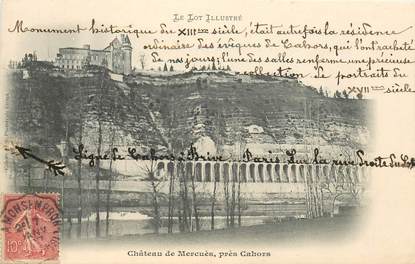 LE LOT ILLUSTRÉ
Monument historique du XIIIème siècle, était autrefois la résidence
ordinaire des évêques de Cahors, qui l'ont racheté
de nos jours, l'une des salles renferme une précieuse
collection de portraits du
XVIIème siècle.
Ligne de Cahors à Brive - Paris sur la rive Droite du Lot
MONSEMPRON
10c
Château de Mercuès, près Cahors